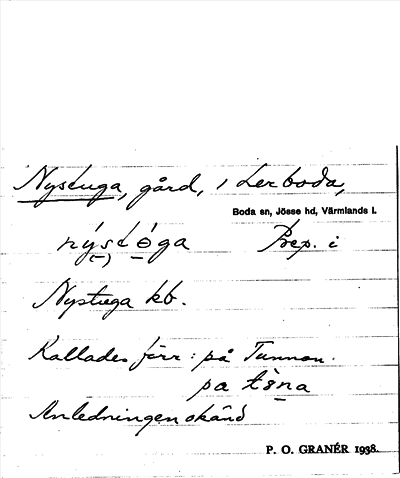 Nystuga, gård, i Lerboda,
Boda sn, Jösse hd, Värmlands l.
nýstóga Prep. i
(–)
Nystuga kb.
Kallades förr: på Tunnan.
pa
Anledningen okänd
P. O. GRANÉR 1938.